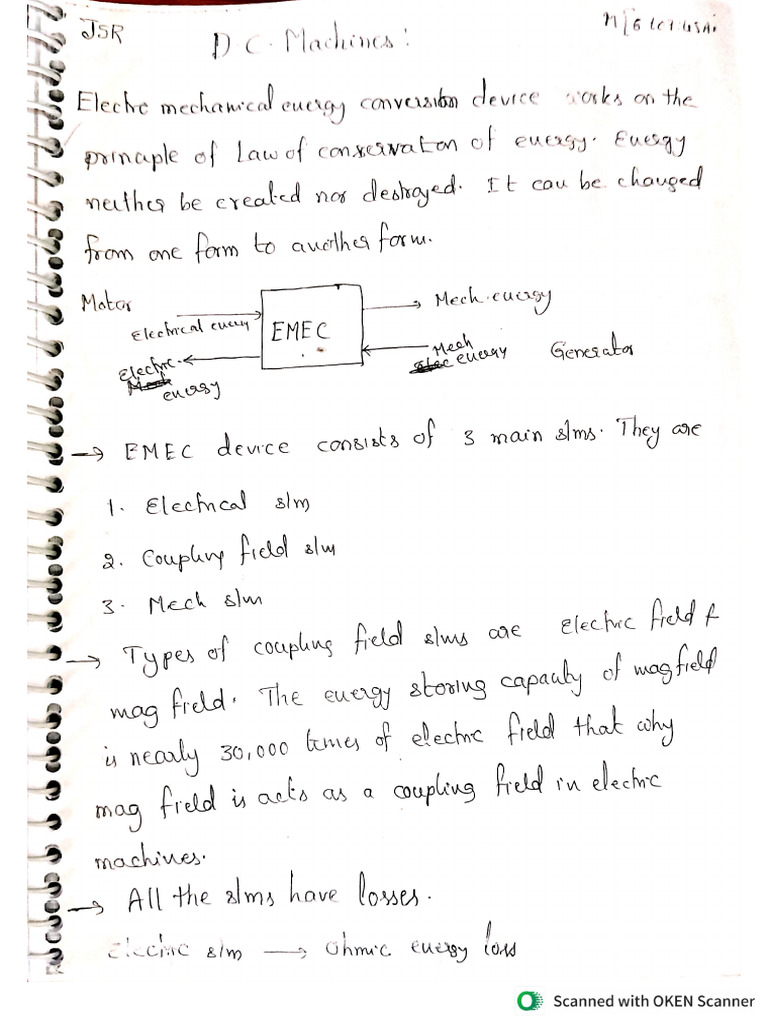 JSR
D C. Machines:
Electro mechanical energy conversion device works on the
principle of law of conservation of energy. Energy
neither be created nor destroyed. It can be changed
from one form to another form.
Motor
Electrical energy
EMEC
Mech. energy
Electric energy
Mech energy
Generator
→ EMEC device consists of 3 main s/ms. They are
1. Electrical s/m
2. Coupling field s/m
3. Mech s/m
→ Types of coupling field s/ms are Electric field &
mag field. The energy storing capacity of mag field
is nearly 30,000 times of electric field that why
mag field is acts as a coupling field in electric
machines.
→ All the s/ms have losses.
Electric s/m → Ohmic energy loss
Scanned with OKEN Scanner